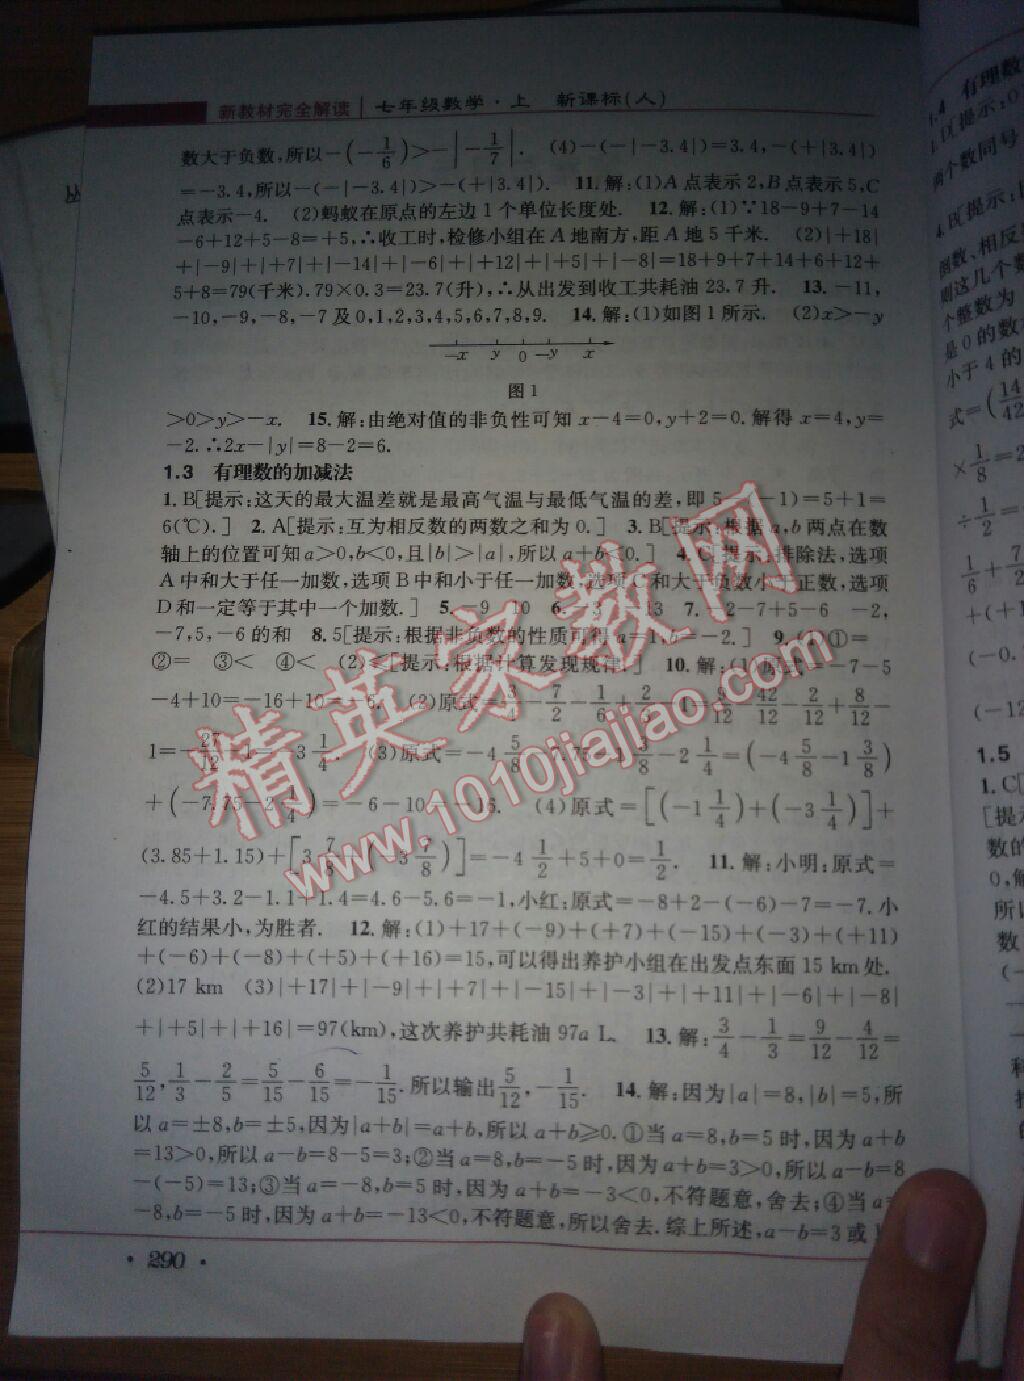 新教材完全解读 七年级数学·上 新课标(人)
数大于负数,所以-(-1/6)>-|-1/7|. (4)-(-|-3.4|)=3.4,-(+|3.4|)
=-3.4,所以-(-|-3.4|)>-(+|3.4|). 11.解:(1)A点表示2,B点表示5,C
点表示-4. (2)蚂蚁在原点的左边1个单位长度处. 12.解:(1)∵18-9+7-14
-6+12+5-8=+5,∴收工时,检修小组在A地南方,距A地5千米. (2)|+18|
+|-9|+|+7|+|-14|+|-6|+|+12|+|+5|+|-8|=18+9+7+14+6+12+
5+8=79(千米).79×0.3=23.7(升),∴从出发到收工共耗油23.7升. 13.-11,
-10,-9,-8,-7及0,1,2,3,4,5,6,7,8,9. 14.解:(1)如图1所示. (2)x>-y
-x y 0 -y x
图1
>0>y>-x. 15.解:由绝对值的非负性可知x-4=0,y+2=0.解得x=4,y=
-2.∴2x-|y|=8-2=6.
1.3 有理数的加减法
1.B[提示:这天的最大温差就是最高气温与最低气温的差,即5-(-1)=5+1=
6(℃).] 2.A[提示:互为相反数的两数之和为0.] 3.B[提示:根据a,b两点在数
轴上的位置可知a>0,b<0,且|b|>|a|,所以a+b<0.] 4.C[提示:排除法,选项
A中和大于任一加数,选项B中和小于任一加数,选项C和大于负数小于正数,选项
D和一定等于其中一个加数.] 5. -9 10 6. 3 13 7.-2-7+5-6 -2,
-7,5,-6的和 8.5[提示:根据非负数的性质可得a=1,b=-2.] 9.(1)①=
②= ③< ④< (2)≤[提示:根据计算发现规律.] 10.解:(1)原式=-7-5
-4+10=-16+10=-6. (2)原式=3/4-7/2-1/6+2/3-1=9/12-42/12-2/12+8/12-
1=-27/12-1=-3 1/4. (3)原式=-4 5/8-7.75-1 3/8-2 1/4=(-4 5/8-1 3/8)
+(-7.75-2 1/4)=-6-10=-16. (4)原式=[(-1 1/4)+(-3 1/4)]+
(3.85+1.15)+[3 7/8+(-3 7/8)]=-4 1/2+5+0=1/2. 11.解:小明:原式=
-4.5+3.2-1.1+1.4=4.6-5.6=-1,小红:原式=-8+2-(-6)-7=-7.小
红的结果小,为胜者. 12.解:(1)+17+(-9)+(+7)+(-15)+(-3)+(+11)
+(-6)+(-8)+(+5)+(+16)=15,可以得出养护小组在出发点东面15 km处.
(2)17 km (3)|+17|+|-9|+|+7|+|-15|+|-3|+|+11|+|-6|+|-8|
+|+5|+|+16|=97(km),这次养护共耗油97a L. 13.解:3/4-1/3=9/12-4/12=
5/12,1/3-2/5=5/15-6/15=-1/15.所以输出5/12,-1/15. 14.解:因为|a|=8,|b|=5,所
以a=±8,b=±5,因为|a+b|=a+b,所以a+b≥0.①当a=8,b=5时,因为a+b
=13>0,所以a-b=8-5=3;②当a=8,b=-5时,因为a+b=3>0,所以a-b=8
-(-5)=13;③当a=-8,b=5时,因为a+b=-3<0,不符题意,舍去;④当a=
-8,b=-5时,因为a+b=-13<0,不符题意,所以舍去.综上所述,a-b=3或1
·290·
精英家教网
www.1010jiajiao.com
1.4 有理数
1.D[提示:
两个数同号
4.B[提示:
倒数、相反
则这几个数
个整数为
是0的数
小于4的
式=(14/42
×1/8=2
÷1/2=
1/6+7/2
+(+1
(-0.
(-12
1.5
1.C[
[提示
数的
0,解
所以
数